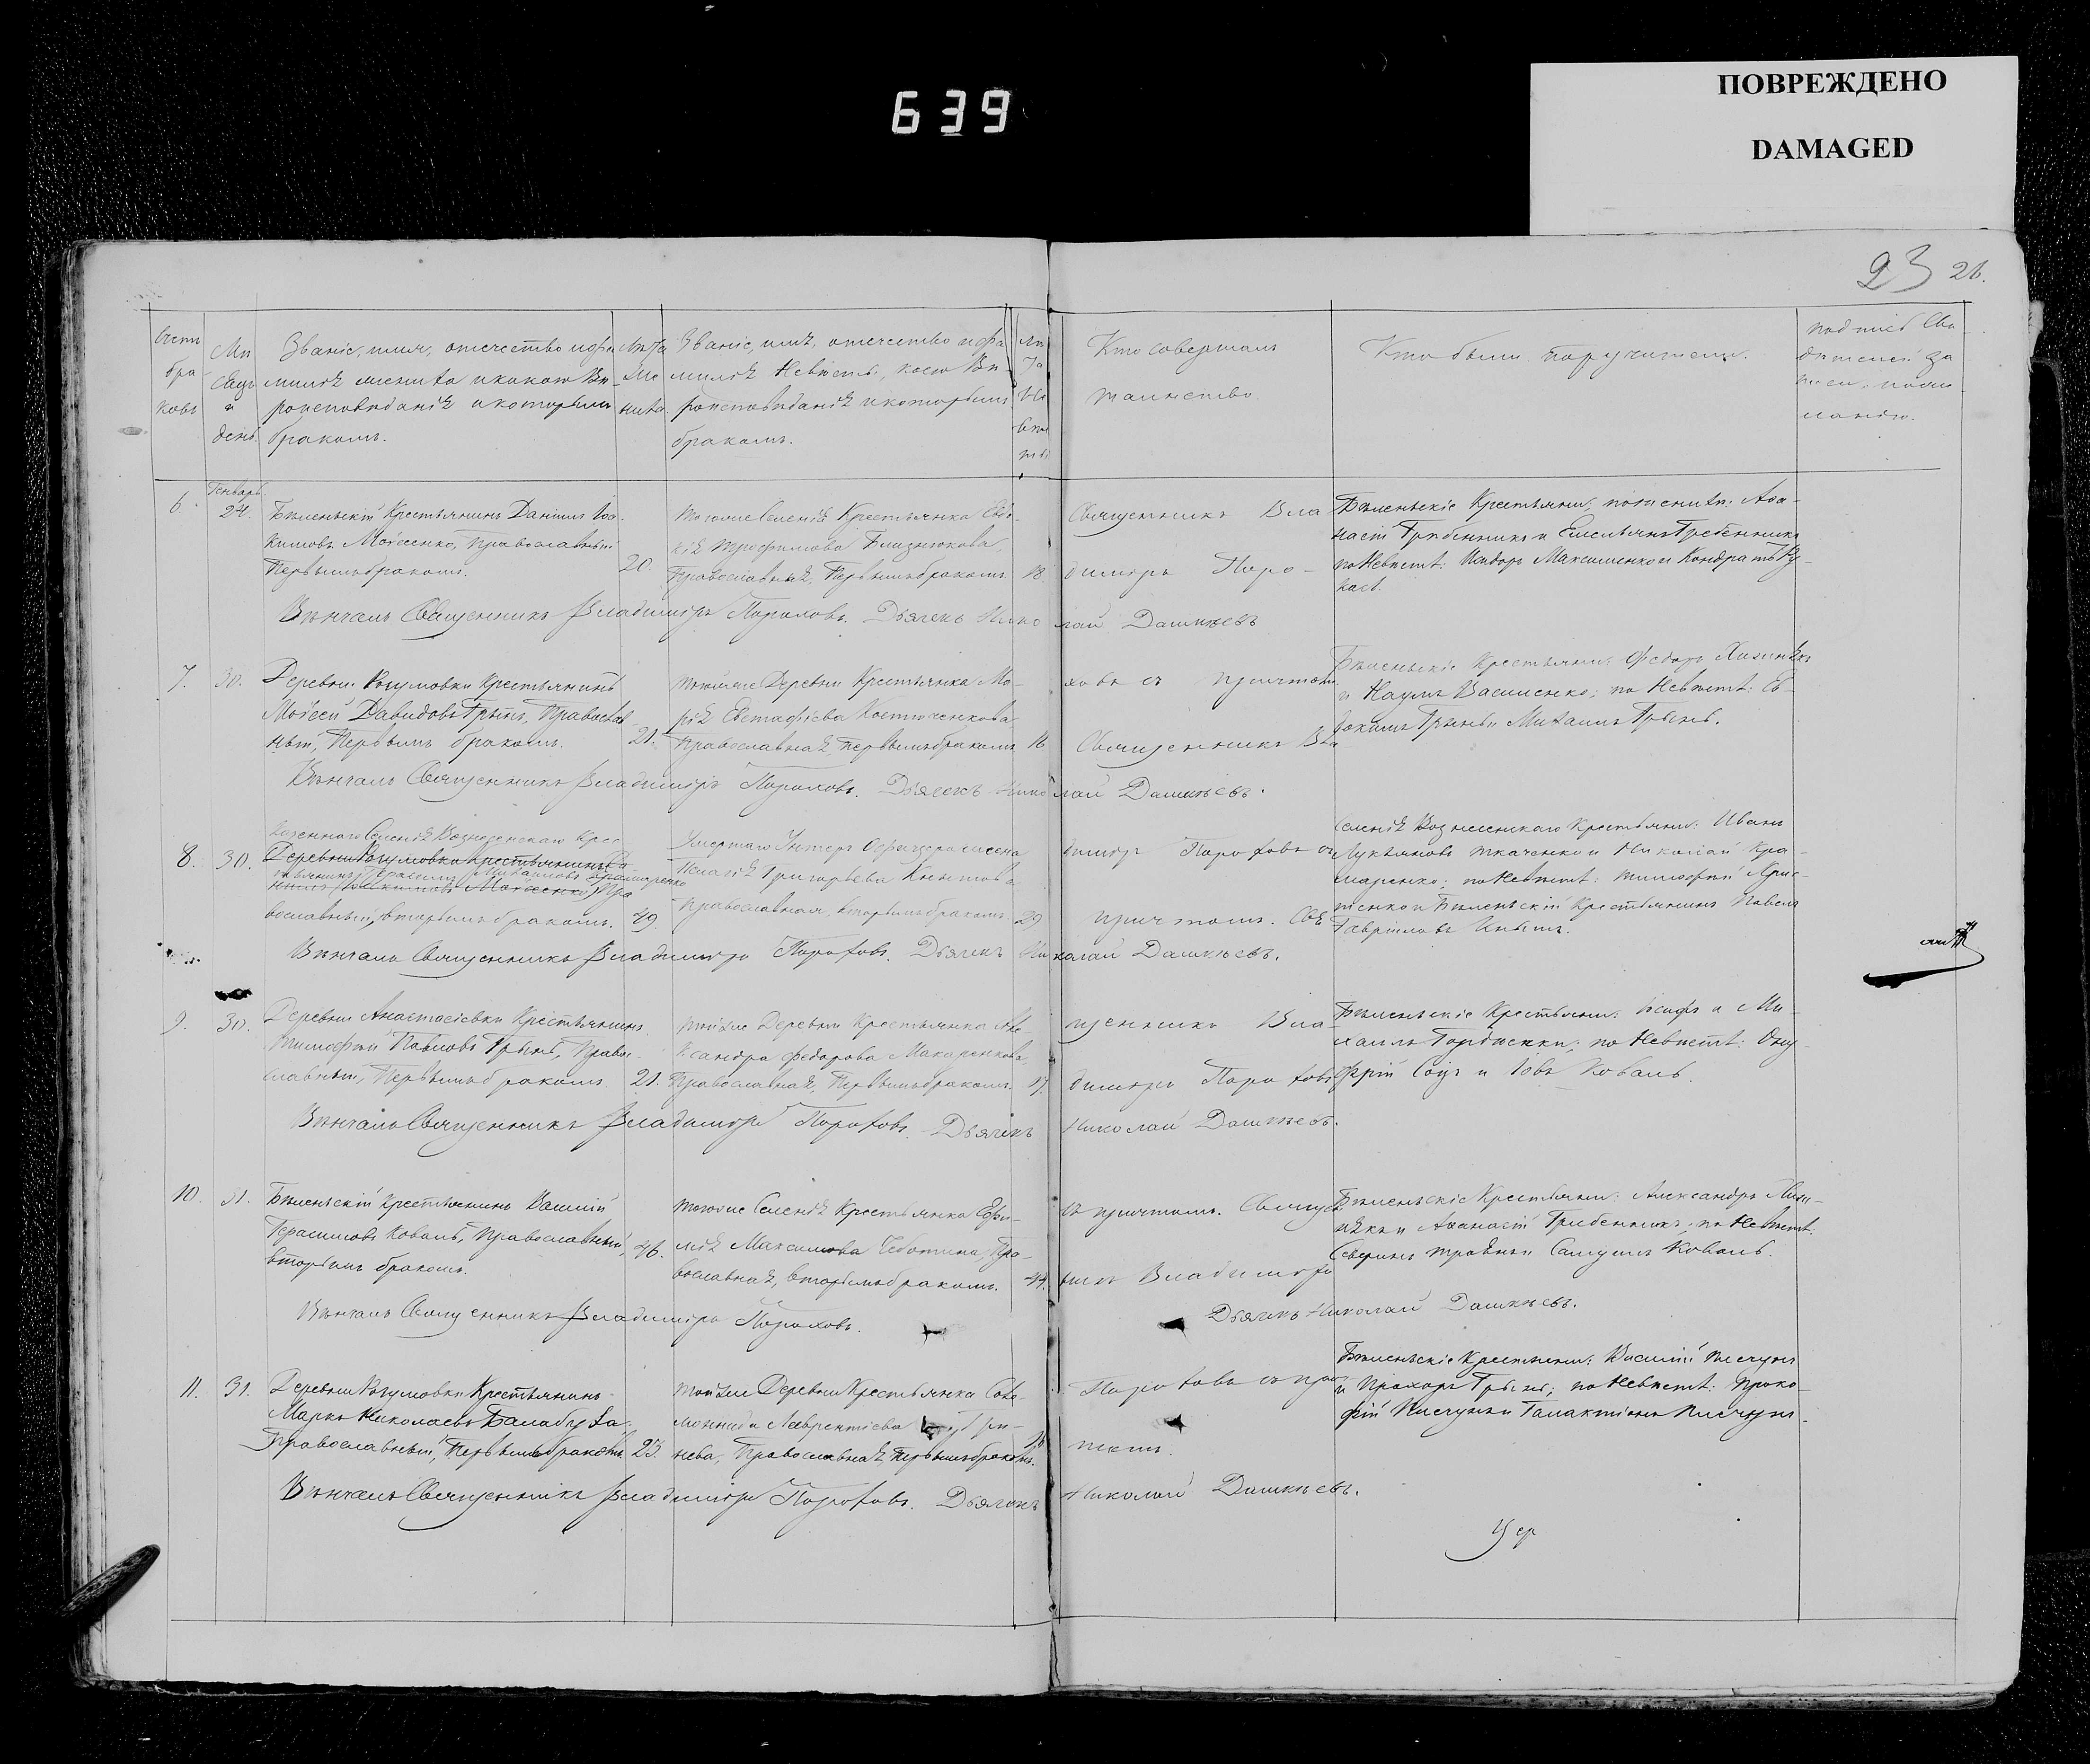 639
ПОВРЕЖДЕНО
DAMAGED
23 26.
Счетъ браковъ
Мѣсяцъ и день.
Званіе, имя, отчество и фа
милія жениха и какого вѣ-
роисповѣданія и которымъ
бракомъ.
Лѣта жениха.
Званіе, имя, отчество и фа
милія невѣсты, коего вѣ-
роисповѣданія и которымъ
бракомъ.
Лѣта невѣсты
Кто совершалъ
таинство.
Кто были поручители.
6.
Генварь
24.
Бѣленьскій Крестьянинъ Даніилъ Іоа-
кимовъ Мойсеенко, православный
Первымъ бракомъ.
20.
Тогоже Селенія Крестьянка Евдо-
кія Трофимова Близнюкова,
Православная, Первымъ бракомъ
18.
Священникъ Вла
диміръ Поро-
Бѣленьскіе Крестьяни, по женихѣ: Афа-
насій Гребенникъ и Емельянъ Гребенникъ
по Невѣстѣ: Исидоръ Максименко и Кондратъ
Вѣнчалъ Священникъ Владиміръ Пороховъ. Дьячекъ Николай Дашкѣевъ
7.
30.
Деревни Разумовки Крестьянинъ
Мойсей Давидовъ Грынь, Православ-
ный, Первымъ бракомъ.
21.
Тойже Деревни Крестьянка Ма-
рія Евстафіева Костюченкова
Православная, Первымъ бракомъ
16
ховъ съ причтомъ
Священникъ Вла
Бѣленьскіе Крестьяни: Федоръ
и Наумъ Василенко; по Невѣстѣ: Ев-
докимъ Грынь и Михаилъ Грынь.
Вѣнчалъ Священникъ Владиміръ Пороховъ. Дьячекъ Николай Дашкѣевъ.
8.
30.
Казеннаго Селенія Вознесенскаго Крес
Деревни Разумовки Крестьянинъ
тьянинъ Михаиловъ Крамаренко
Мойсеенко, Пра
вославный, вторымъ бракомъ.
49.
Умершаго Унтеръ Офицера жена
Пелагія Григорьева Книшова
Православная, вторымъ бракомъ
29
диміръ Пороховъ съ
причтомъ. Свя
Селенія Вознесенскаго Крестьяни: Иванъ
Лукьяновъ Ткаченко и Николай Кра-
маренко; по Невѣстѣ: Тимофей
тенко и Бѣленьскій Крестьянинъ Павелъ
Гавріиловъ Книшъ.
Вѣнчалъ Священникъ Владиміръ Пороховъ. Дьячекъ Николай Дашкѣевъ.
9.
30.
Деревни Анастасіевки Крестьянинъ
Тимофей Павловъ Грынь, Право-
славный, Первымъ бракомъ.
21.
Тойже Деревни Крестьянка Але-
ксандра Федорова Макаренкова,
Православная, Первымъ бракомъ.
17.
щенникъ Вла-
диміръ Пороховъ
Бѣленьскіе Крестьяни: Іосифъ и Ми-
хаилъ по Невѣстѣ: Ону-
фрій и Іовъ Коваль.
Вѣнчалъ Священникъ Владиміръ Пороховъ. Дьячекъ Николай Дашкѣевъ.
10.
31.
Бѣленьскій Крестьянинъ Василій
Герасимовъ Коваль, Православный,
вторымъ бракомъ.
46.
Тогоже Селенія Крестьянка Ефи-
мія Максимова Чеботина, Пра-
вославная, вторымъ бракомъ.
44.
съ причтомъ. Священ
никъ Владиміръ
Бѣленьскіе Крестьяни: Александръ
и Афанасій Гребенникъ; по Невѣстѣ:
Северинъ и Самуилъ Коваль.
Вѣнчалъ Священникъ Владиміръ Пороховъ.
Дьячекъ Николай Дашкѣевъ.
11.
31.
Деревни Разумовки Крестьянинъ
Марко Николаевъ Балабуха
Православный, Первымъ бракомъ
23.
Тойже Деревни Крестьянка Соло-
монида Лаврентіева
нева, Православная, Первымъ бракомъ.
Пороховъ съ прич
томъ.
Бѣленьскіе Крестьяни: Василій Писчунъ
и Прохоръ Грынь; по Невѣстѣ: Проко-
фій Писчунъ и Галактіонъ Писчунъ.
Вѣнчалъ Священникъ Владиміръ Пороховъ. Дьячекъ Николай Дашкѣевъ.